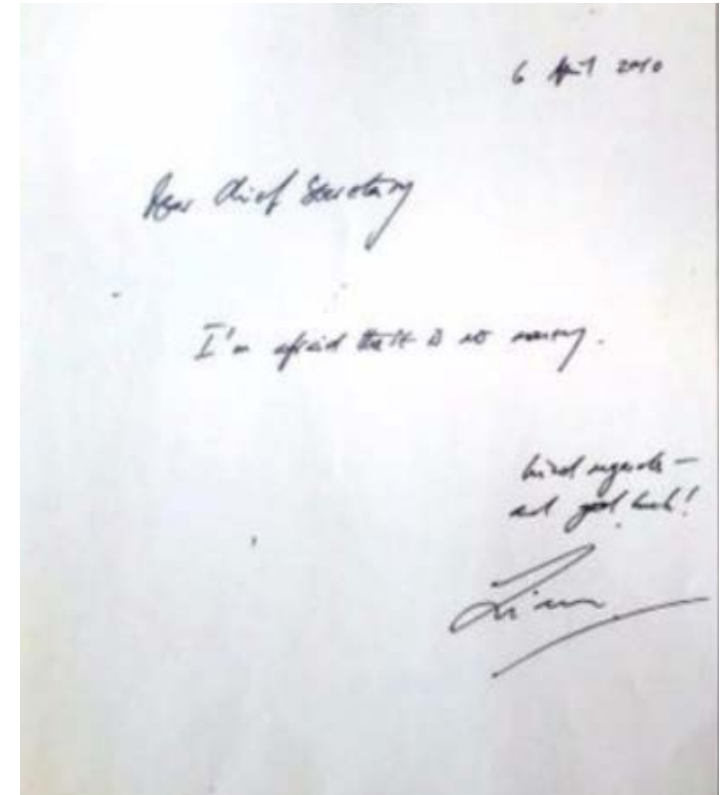 6 April 2010
Dear Chief Secretary
I'm afraid there is no money.
kind regards –
and good luck!
Liam